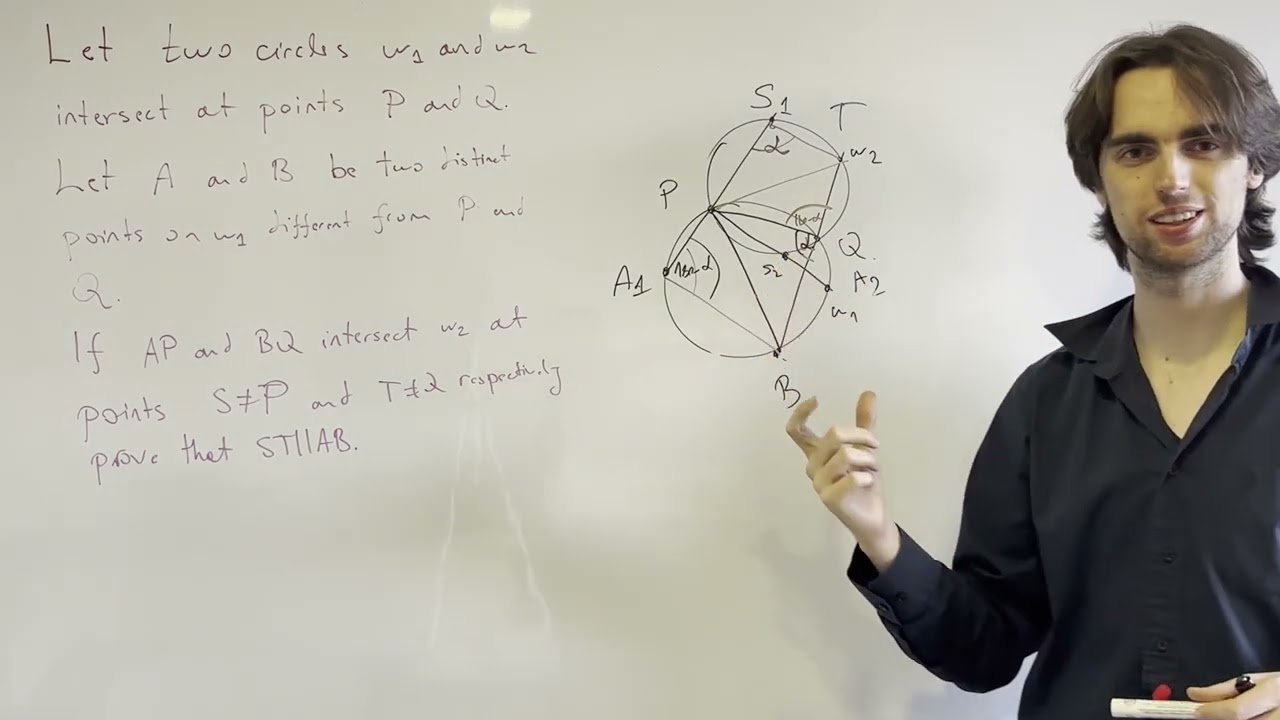 Let two circles w1 and w2
intersect at points P and Q.
Let A and B be two distinct
points on w1 different from P and
Q.
If AP and BQ intersect w2 at
points S≠P and T≠Q respectively
prove that ST||AB.
S1
T
w2
P
α
180-α
Q.
α
S2
A1
180-α
A2
w1
B